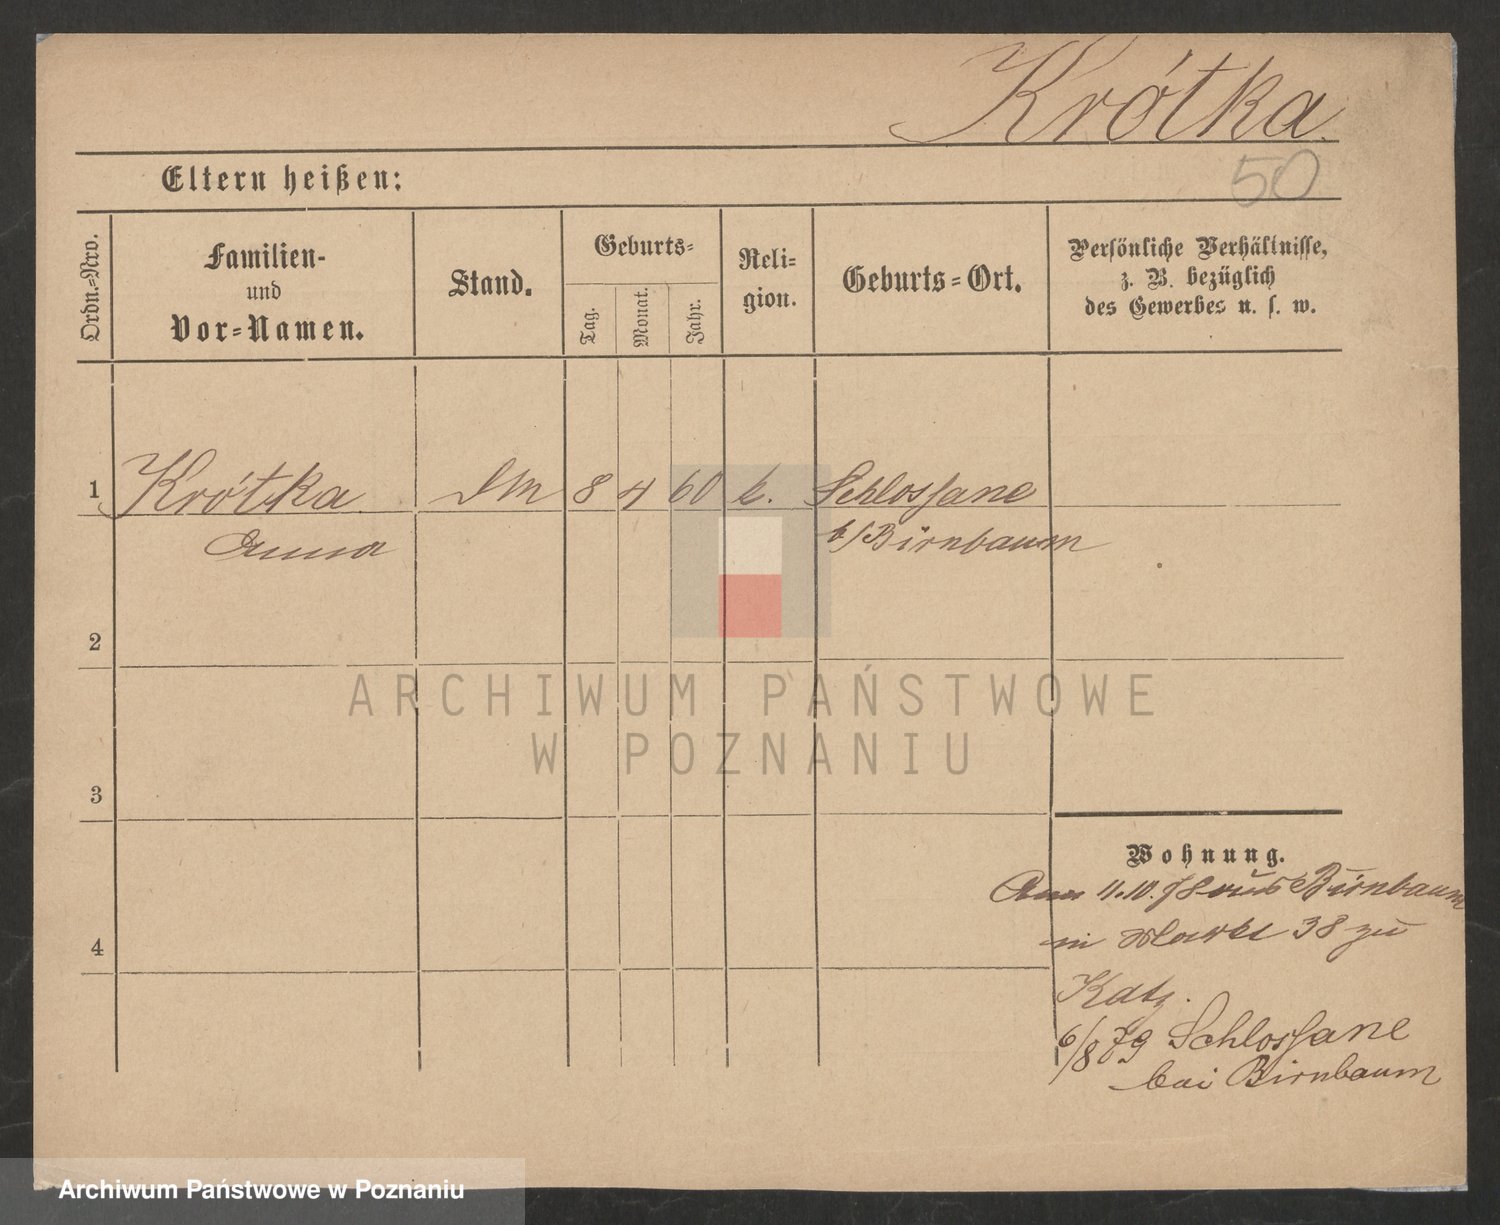 Krótka
50
Eltern heißen:
Ordn.-Nro.
Familien-
und
Vor-Namen.
Stand.
Geburts-
Tag.
Monat.
Jahr.
Reli-
gion.
Geburts-Ort.
Persönliche Verhältnisse,
z. B. bezüglich
des Gewerbes u. s. w.
1 Krótka DM 8 4 60 k. Schlossane
Anna b/Birnbaum
2
3
4
Wohnung.
Am 11.10.78 aus Birnbaum
in Markt 38 zu
Katz.
6/8 79 Schlossane
bei Birnbaum
ARCHIWUM PAŃSTWOWE
W POZNANIU
Archiwum Państwowe w Poznaniu